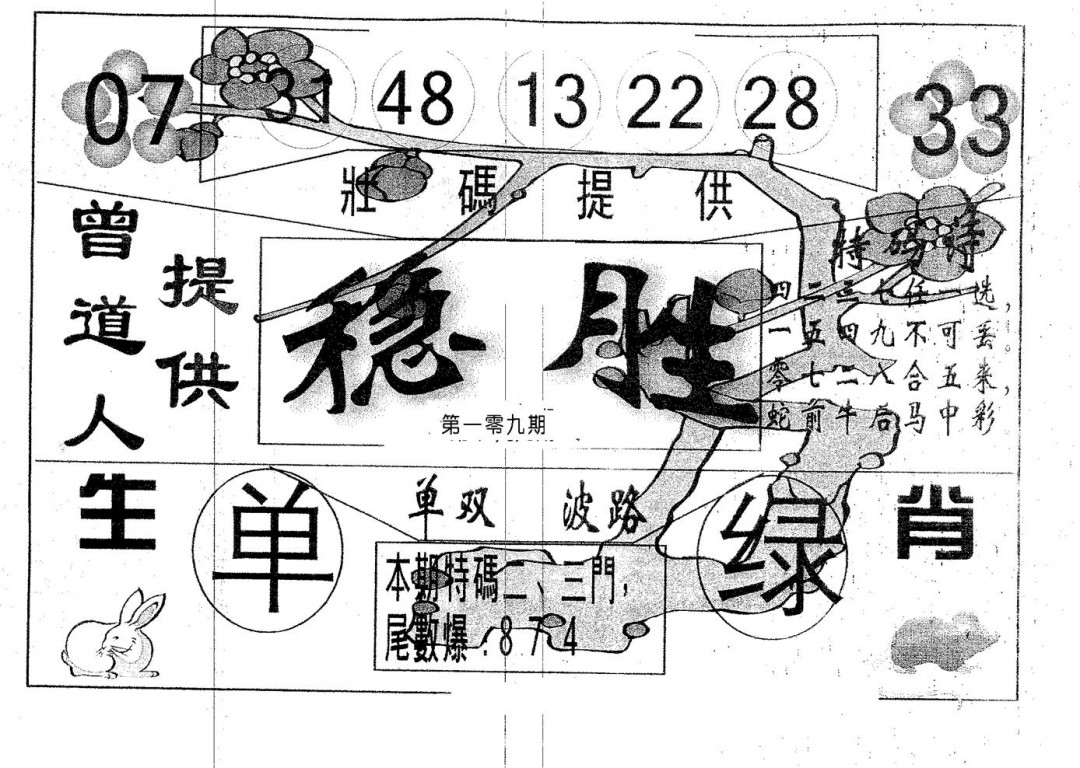 07 31 48 13 22 28 33
壯碼提供
曾道人
提供
特碼诗
四二三七任一选，
一五四九不可丢。
零七二八合五来，
蛇前牛后马中彩
稳胜
第一零九期
生肖
单
单双 波路
绿
本期特碼二、三門，
尾數爆：8 7 4